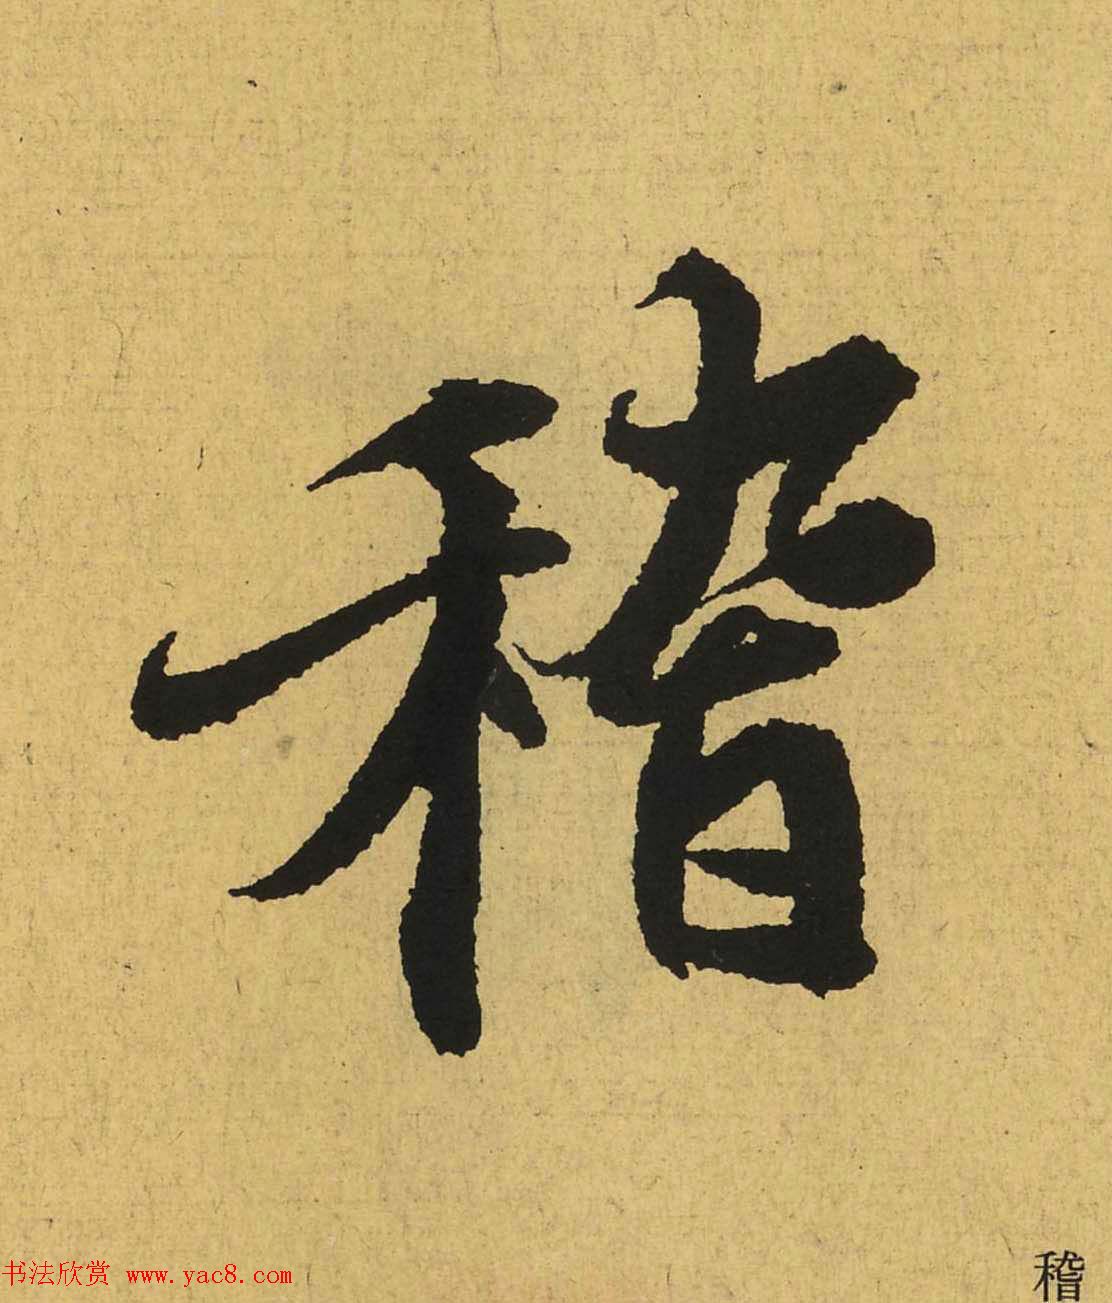 稽
书法欣赏 www.yac8.com
稽